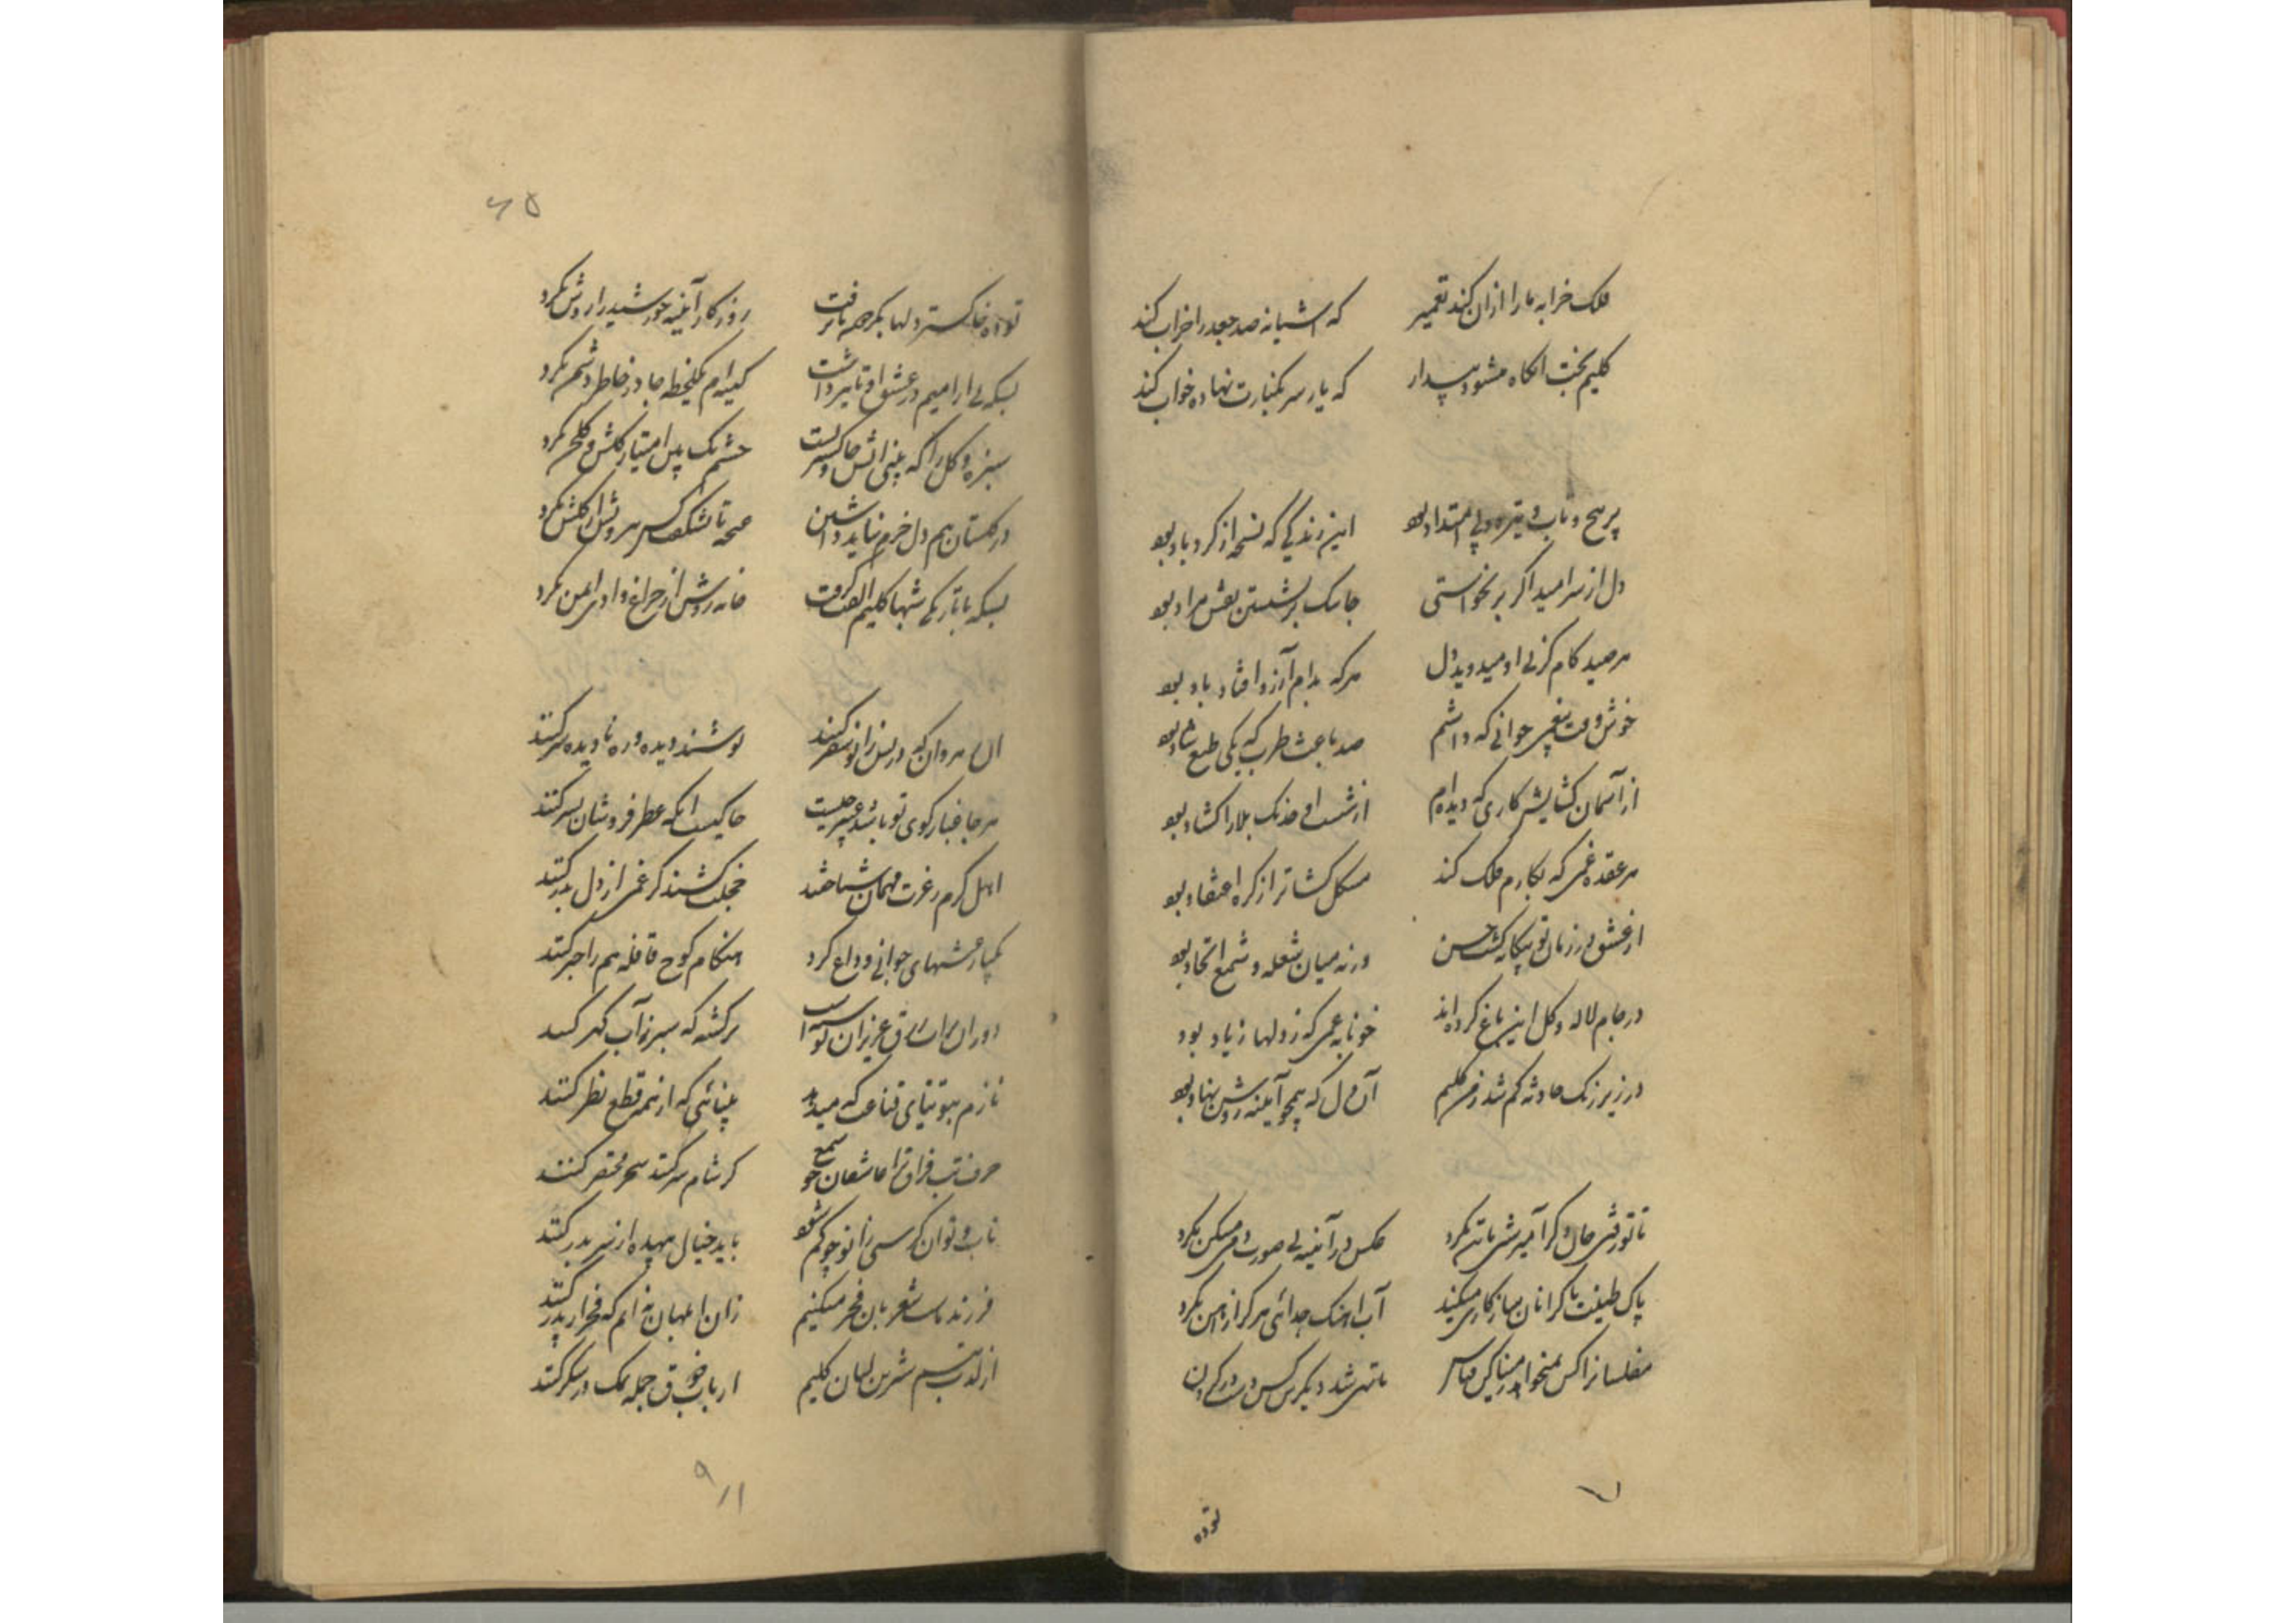 فلک خرابه ما را ازان کند تعمیر که آشیانه صد جغد را خراب کند
کلیم بخت انگاه میشود بیدار که یار سر بکنارت نهاده خواب کند
پر پیچ و تاب و تیره و بی امتداد بود این زندگی که نسخه از گردباد بود
دل از سر امید اگر برنخواستی جایک نشستن نقش مراد بود
هر صید کام کز پی او میدوید دل هر که بدام آرزو افتاد باد بود
خوش وقت بیغمی جوانی که داشتم صد باعث طرب که یکی طبع شاد بود
از آسمان گشایش کاری که دیده‌ام از شست او خدنگ بلا را گشاد بود
هر عقده غمی که بکارم فلک کند مشکل گشاتر از گره اعتقاد بود
از عشق در زمان تو بیگانه گشت حسن ورنه میان شعله و شمع اتحاد بود
در جام لاله و گل این باغ کرده‌اند خونابه غمی که ز دلها زیاد بود
در زیر زنگ حادثه گم شد ز من کلیم آن دل که همچو آینه روشن نهاد بود
تا توفتی جان دگر آمیزش با تن نکرد عکس در آینه بی صورت دمی مسکن نکرد
پاک طینت با گرانان سازگاری میکند آب آهنگ جدائی هرگز از آهن نکرد
مفلسانرا کس نمیخواهد ز مینا کن قیاس تا تهی شد دیگرش کس دست در گردن
توده
۶۵
توده خاکستر دلها بگر همه تا رفت روزگار آینه خورشید را روشن نکرد
بسکه بی آرامیم در عشق او تاثیر داشت کینه‌ام یکلحظه جا در خاطر دشمن نکرد
سبزه و گل را که بینی آتش و خاکسترست چشم نیک بین امتیاز گلشن و گلخن نکرد
در گلستان هم دل خرم نباید داشتن غنچه تا نشکفت کس بیرونش از گلشن نکرد
بسکه با تاریکی شبها کلیم الفت گرفت خانه روشن از چراغ وادی ایمن نکرد
آن رهروان که در پس زانو سفر کنند پوشند دیده و ره نادیده سر کنند
هر جا غبار کوی تو باشد عبیر چیست خاکیست آنکه عطر فروشان بسر کنند
اهل کرم ز غیرت مهمان شناختند خجلت کشند گر غمی از دل بدر کنند
یکبار عیشهای جوانی وداع کرد هنگام کوچ قافله هم را خبر کنند
دوران عزیزان تو است هر کشته که سبز ز آب گهر کنند
نازم بتوتیای قناعت که میدهد بینائی که از همه قطع نظر کنند
حرف شب فراق ترا عاشقان چو شمع گر شام سر کنند سحر مختصر کنند
تاب و توان کرسی زانو چو کم شود باید خیال بیهده از سر بدر کنند
فرزند ماست شعر بآن فخر میکنیم زان ابلهان نه‌ایم که فخر از پدر کنند
از لذت تبسم شیرین لبان کلیم ارباب ذوق جمله نمک در شکر کنند